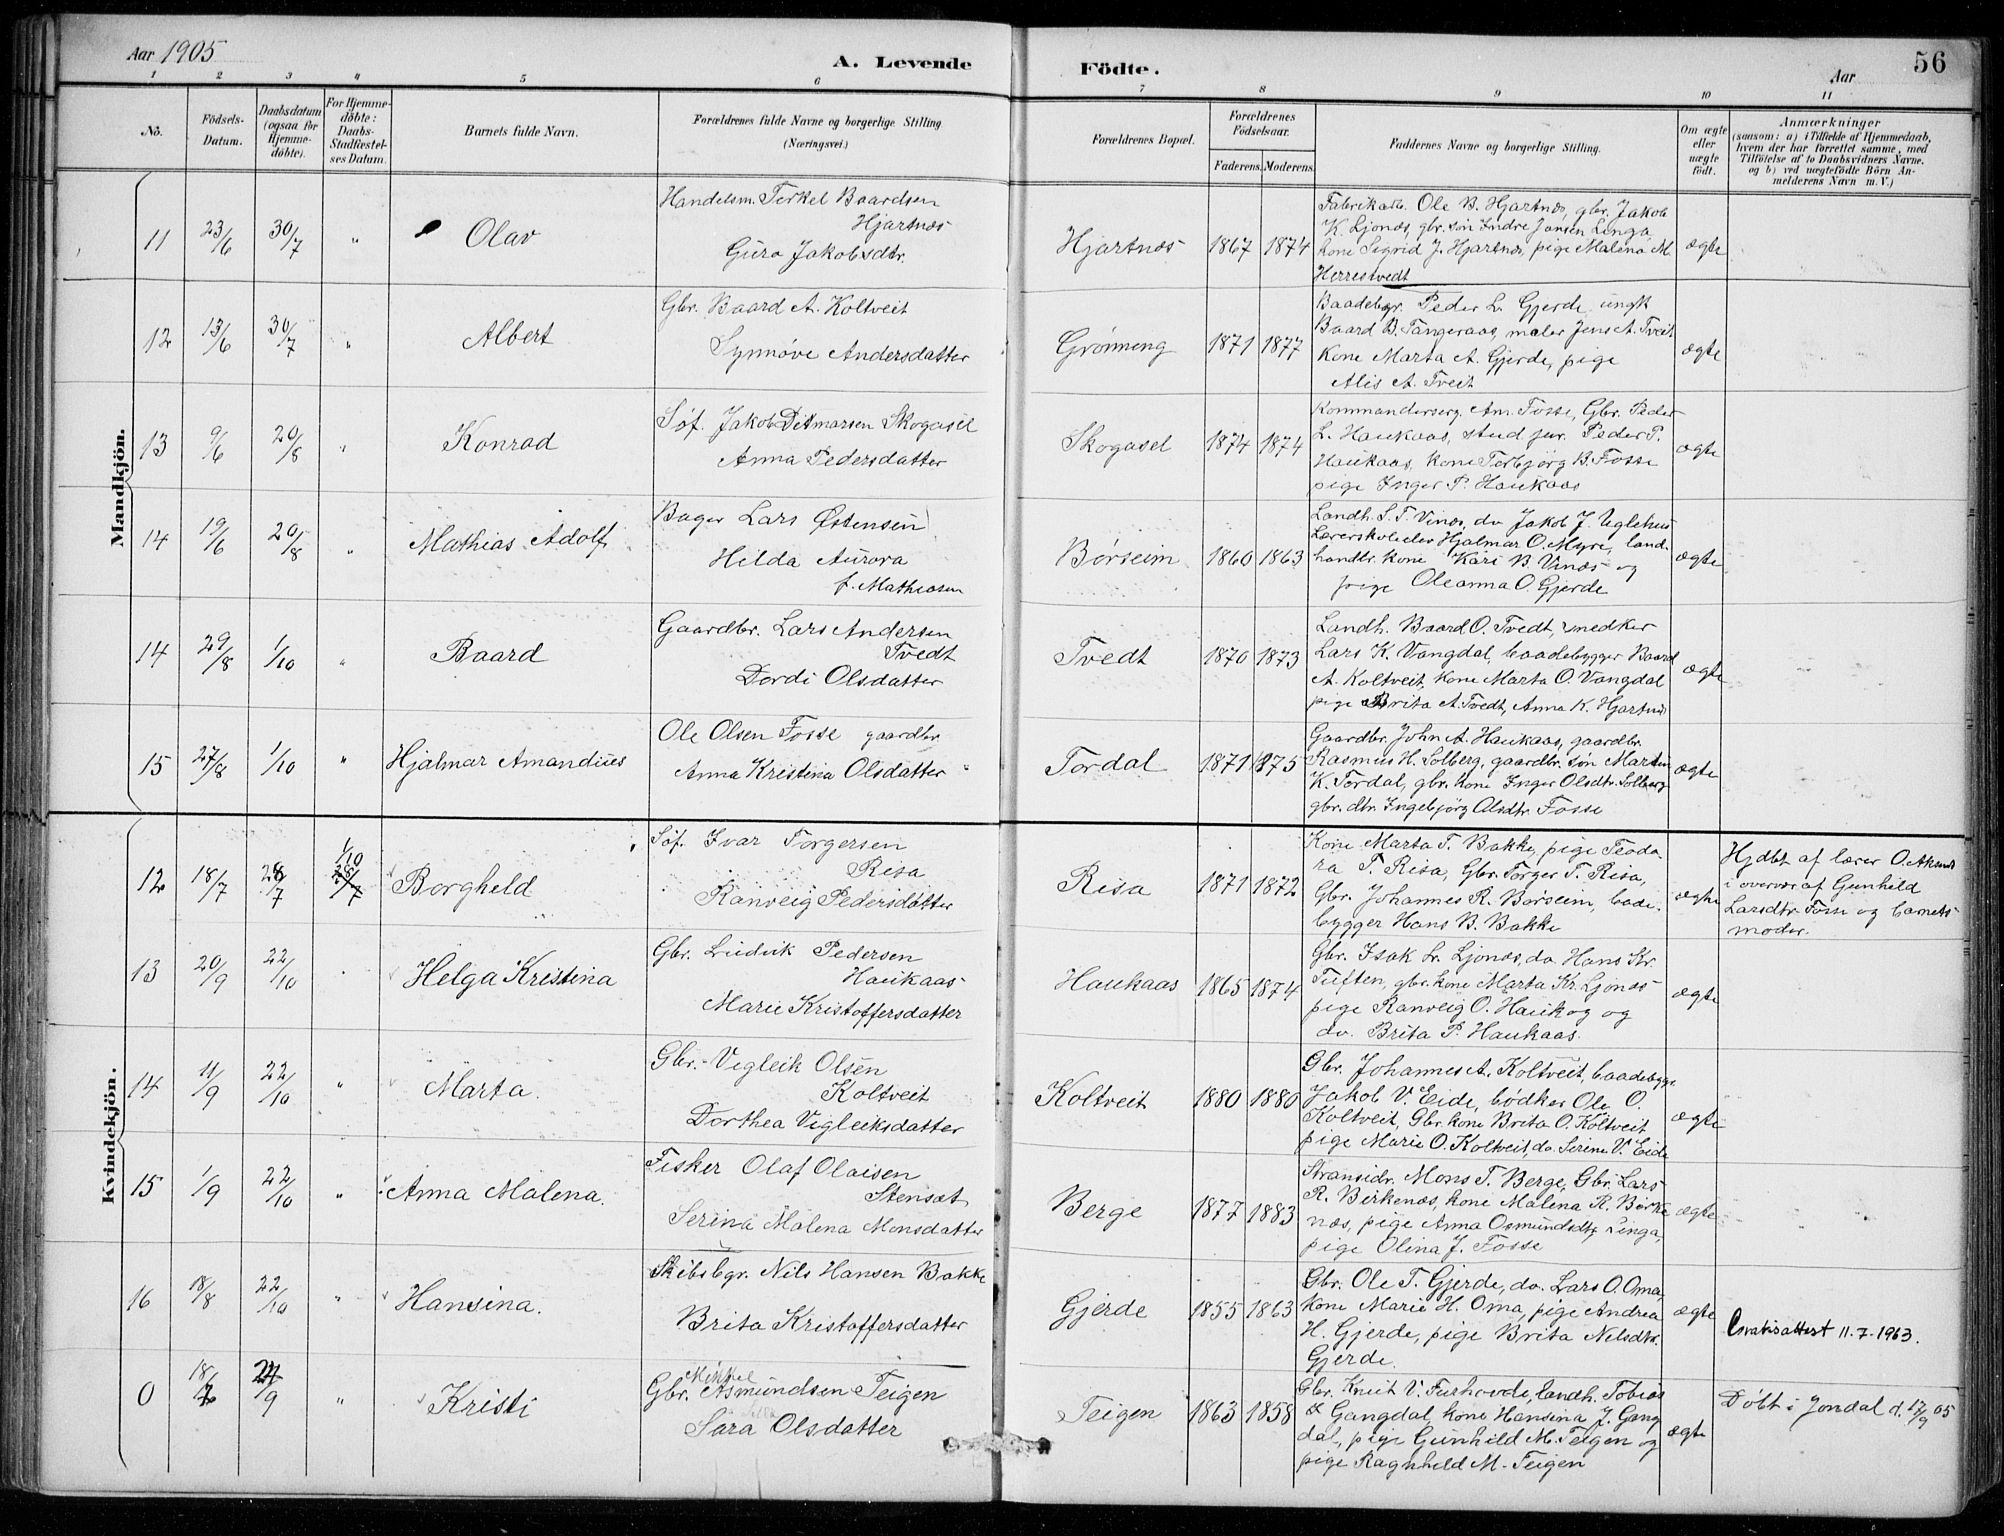 Aar 1905
A. Levende Födte.
Aar
56
1 2 3 4 5 6 7 8 9 10 11
No.
Födsels-Datum.
Daabsdatum (ogsaa for Hjemme-döbte).
For Hjemme-döbte: Daabs-Stadfæstel-ses Datum.
Barnets fulde Navn.
Forældrenes fulde Navne og borgerlige Stilling (Næringsvei.)
Forældrenes Bopæl.
Forældrenes Födselsaar.
Faderens. Moderens.
Faddernes Navne og borgerlige Stilling.
Om ægte eller uægte födt.
Anmærkninger
(saasom: a) i Tilfælde af Hjemmedaab, hvem der har forrettet samme, med Tilföielse af to Daabsvidners Navne. og b) ved uægtefödte Börn An-melderens Navn m. V.)
Mandkjön.
11 23/6 30/7 " Olav
Handelsm. Terkel Baardsen
Hjartnæs
Guro Jakobsdtr.
Hjartnæs 1867 1874
Fabrikarb. Ole B. Hjartnæs, gbr. Jakob
K. Ljonæs, gbr. søn Indre Jansen Linga
kone Sigrid J. Hjartnæs, pige Malena M.
Herrestvedt
ægte
12 13/6 30/7 " Albert
Gbr. Baard A. Koltveit
Synnøve Andersdatter
Grønneng 1871 1877
Baadebgr. Peder L. Gjerde, ungk
Baard B. Tangeraas, maler Jens A. Tveit
Kone Marta A. Gjerde, pige
Alis A. Tveit
ægte
13 9/6 20/8 " Konrad
Søf. Jakob Ditmarsen Skogasel
Anna Pedersdatter
Skogasel 1874 1874
Kommanderserg. Am. Fosse, Gbr. Peder
L. Haukaas, stud jur. Peder P.
Haukaas, kone Torbjørg B. Fosse
pige Inger P. Haukaas
ægte
14 19/6 20/8 " Mathias Adolf
Bager Lars Østensen
Hilda Aurora
f. Mathiasen
Børseim 1860 1863
Landh. S. T. Vinæs, do Jakob J. Uglehus
Lærerskoleelev Hjalmar O. Myre, land-
handlr. kone Kari B. Vinæs og
pige Oleanna O. Gjerde
ægte
14 29/8 1/10 " Baard
Gaardbr. Lars Andersen
Tvedt
Dordi Olsdatter
Tvedt 1870 1873
Landh. Baard O. Tvedt, snedker
Lars K. Vangdal, baadebygger Baard
A. Koltveit, kone Marta O. Vangdal
pige Brita A. Tvedt, Anna K. Hjartnæs
ægte
15 27/8 1/10 " Hjalmar Amandius
Ole Olsen Fosse gaardbr.
Anna Kristina Olsdatter
Tordal 1871 1875
Gaardbr. John A. Haukaas, gaardbr.
Rasmus H. Solberg, gaardbr. søn Martin
K. Tordal, gbr. kone Inger Olsdtr. Solberg
gbr. dtr. Ingebjörg Olsdtr. Fosse
ægte
Kvindekjön.
12 18/7 28/7 1/10 28/7 Borgheld
Søf. Ivar Torgersen
Risa
Ranveig Pedersdatter
Risa 1871 1872
Kone Marta T. Bakke, pige Teodo-
ra T. Risa, Gbr. Torger T. Risa,
Gbr. Johannes R. Børseim, bade-
bygger Hans B. Bakke
ægte
Hjdbt af lærer O. Aksnes
i overvær af Gunhild
Larsdtr. Fosse og barnets
moder.
13 20/9 22/10 Helga Kristina
Gbr. Ludvik Pedersen
Haukaas
Marie Kristoffersdatter
Haukaas 1865 1874
Gbr. Isak L. Ljonæs, do Hans Kr.
Tuften, gbr. kone Marta Kr. Ljonæs
pige Ranveig O. Haukog og
do. Brita P. Haukaas.
ægte
14 11/9 22/10 " Marta.
Gbr. Vigleik Olsen
Koltveit
Dorthea Vigleiksdatter
Koltveit 1880 1880
Gbr. Johannes A. Koltveit, baadebygr.
Jakob V. Eide, bødker Ole O.
Koltveit, Gbr. kone Brita O. Koltveit
pige Marie O. Koltveit, do Serine V. Eide
ægte
15 1/9 22/10 " Anna Malena.
Fisker Olaf Olaisen
Stensæt
Serina Malena Monsdatter
Berge 1877 1883
Stransidr. Mons T. Berge, Gbr. Lars
R. Birkenæs, kone Malena R. Birke
næs, pige Anna Osmundsdtr Linga,
pige Olina J. Fosse
ægte
16 18/8 22/10 " Hansina.
Skibsbgr. Nils Hansen Bakke
Brita Kristoffersdatter
Gjerde 1855 1863
Gbr. Ole T. Gjerde, do. Lars O. Oma,
kone Marie H. Oma, pige Andrea
H. Gjerde, pige Brita Nilsdtr.
Gjerde.
ægte
Gratisattest 11.7.1963.
0 18/7 /9 " Kristi
Mikkel
Gbr. Asmundsen Teigen
Sara Olsdatter
Teigen 1863 1858
Gbr. Knut V. Furhovde, landh. Tobias
Gangdal, kone Hansina J. Gang
dal, pige Gunhild M. Teigen og
pige Ragnhild M. Teigen
ægte
Døbt i Jondal d. 17/9 05